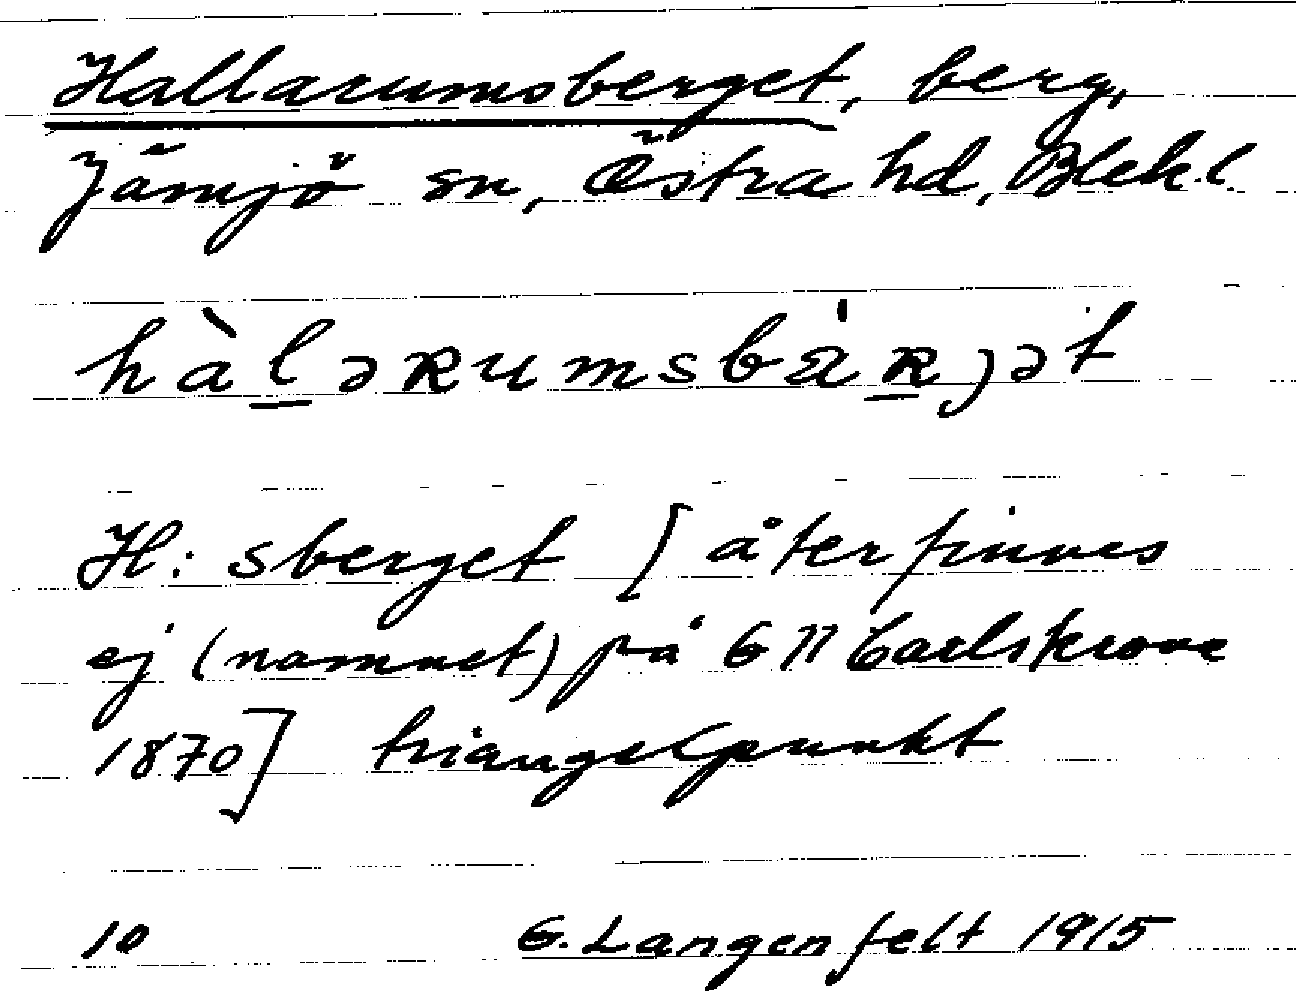 Hallarumsberget, berg,
Jämjö sn, Östra hd, Blek.l.
hàlərumsbä̀rjət
H: sberget [återfinnes
ej (namnet) på G II Carlskrona
1870] triangelpunkt
10 G. Langenfelt 1915